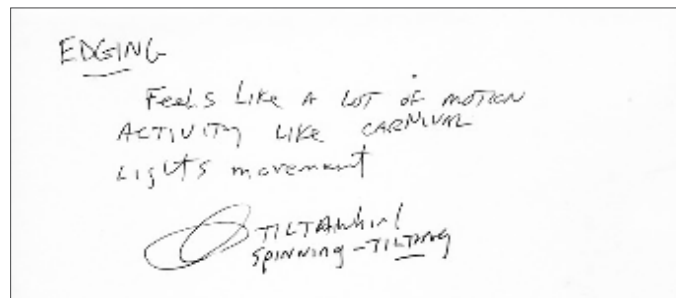 EDGING
Feels Like A LOT of MOTION
ACTIVITy LIKE CARNIVAL
LigHTS movement
TILTAwhirl
SPINNING-TILTING